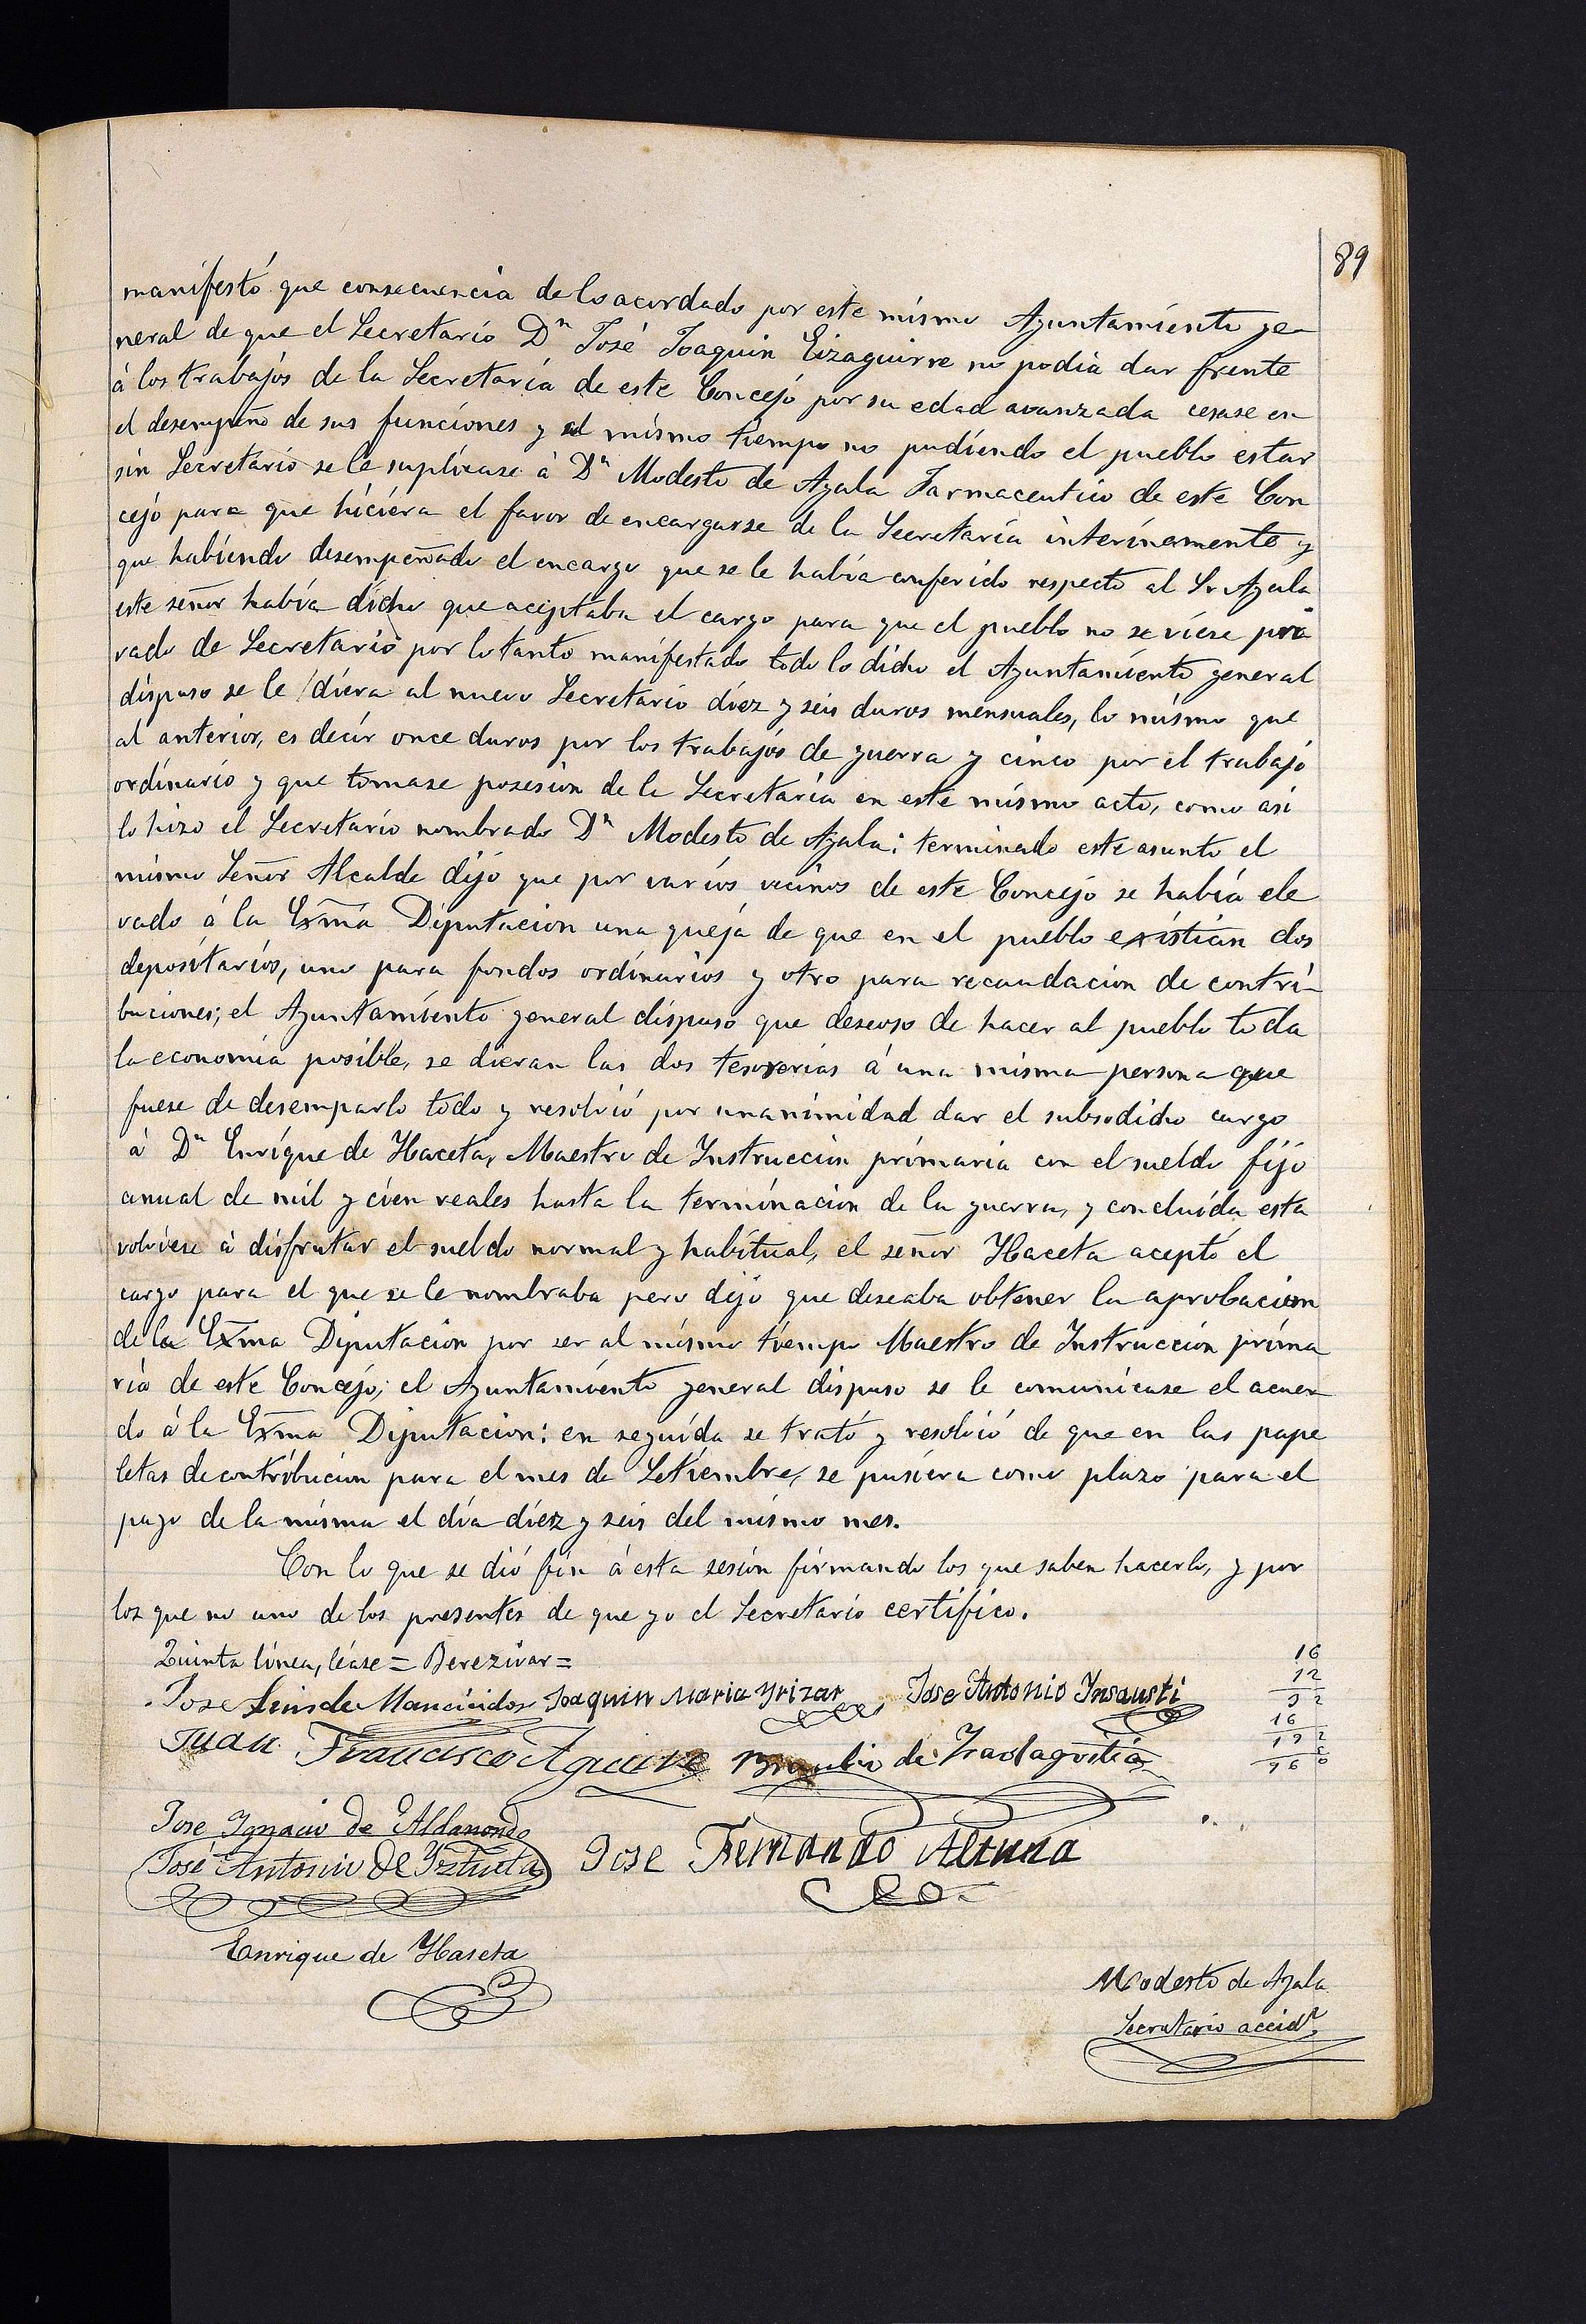 89
manifestó que consecuencia de lo acordado por este mismo Ayuntamiento ge-
neral de que el Secretario Dn José Joaquin Eizaguirre no podia dar frente
á los trabajos de la Secretaria de este Concejo por su edad avanzada cesase en
el desempeño de sus funciones y al mismo tiempo no pudiendo el pueblo estar
sin Secretario se le suplicase á Dn Modesto de Ayala Farmaceutico de este Con
cejo para que hiciera el favor de encargarse de la Secretaria interinamente y
que habiendo desempeñado el encargo que se le habia conferido respecto al Sr Ayala
este señor habia dicho que aceptaba el cargo para que el pueblo no se viese pri
vado de Secretario por lo tanto manifestado todo lo dicho el Ayuntamiento general
dispuso se le diera al nuevo Secretario diez y seis duros mensuales, lo mismo que
al anterior, es decir once duros por los trabajos de guerra y cinco por el trabajo
ordinario y que tomase posesion de la Secretaria en este mismo acto, como asi
lo hizo el Secretario nombrado Dn Modesto de Ayala: terminado este asunto el
mismo Señor Alcalde dijo que por varios vecinos de este Concejo se habia ele
vado á la Exma Diputacion una queja de que en el pueblo existian dos
depositarios, uno para fondos ordinarios y otro para recaudacion de contri-
buciones; el Ayuntamiento general dispuso que deseoso de hacer al pueblo toda
la economia posible, se dieran las dos tesorerias á una misma persona que
fuese de desemparlo todo y resolvió por unanimidad dar el subsodicho cargo
á Dn Enrique de Ybaceta, Maestro de Instruccion primaria con el sueldo fijo
anual de mil y cien reales hasta la terminacion de la guerra, y concluida esta
volviese á disfrutar el sueldo normal y habitual, el señor Ybaceta aceptó el
cargo para el que se le nombraba pero dijo que deseaba obtener la aprobacion
de la Exma Diputacion por ser al mismo tiempo Maestro de Instruccion prima
ria de este Concejo; el Ayuntamiento general dispuso se le comunicase el acuer
do á la Exma Diputacion: en seguida se trató y resolvió de que en las pape
letas de contribucion para el mes de Setiembre, se pusiera como plazo para el
pago de la misma el dia diez y seis del mismo mes.
Con lo que se dió fin á esta sesion firmando los que saben hacerlo, y por
los que no uno de los presentes de que yo el Secretario certifico.
Quinta linea, léase = Berezivar =
Jose Luis de Mancisidor Joaquin Maria Yrizar Jose Antonio Ynsausti
Juan Francisco Aguirre Braulio de
Jose Ignacio de Aldanondo
José Antonio de Iztueta Jose Fernando Altuna
Enrique de Ybaseta
Modesto de Ayala
Secretario accidl
16
12
32
16
192
5
960